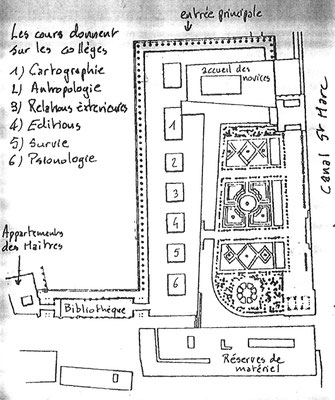 entrée principale
Les cours donnent
sur les collèges
1) Cartographie
2) Antropologie
3) Relations éxterieures
4) Editions
5) Survie
6) Psionologie
accueil des
novices
1
2
3
4
5
6
Canal St Marc
Appartements
des Maitres
Bibliothèque
Réserves de
matériel